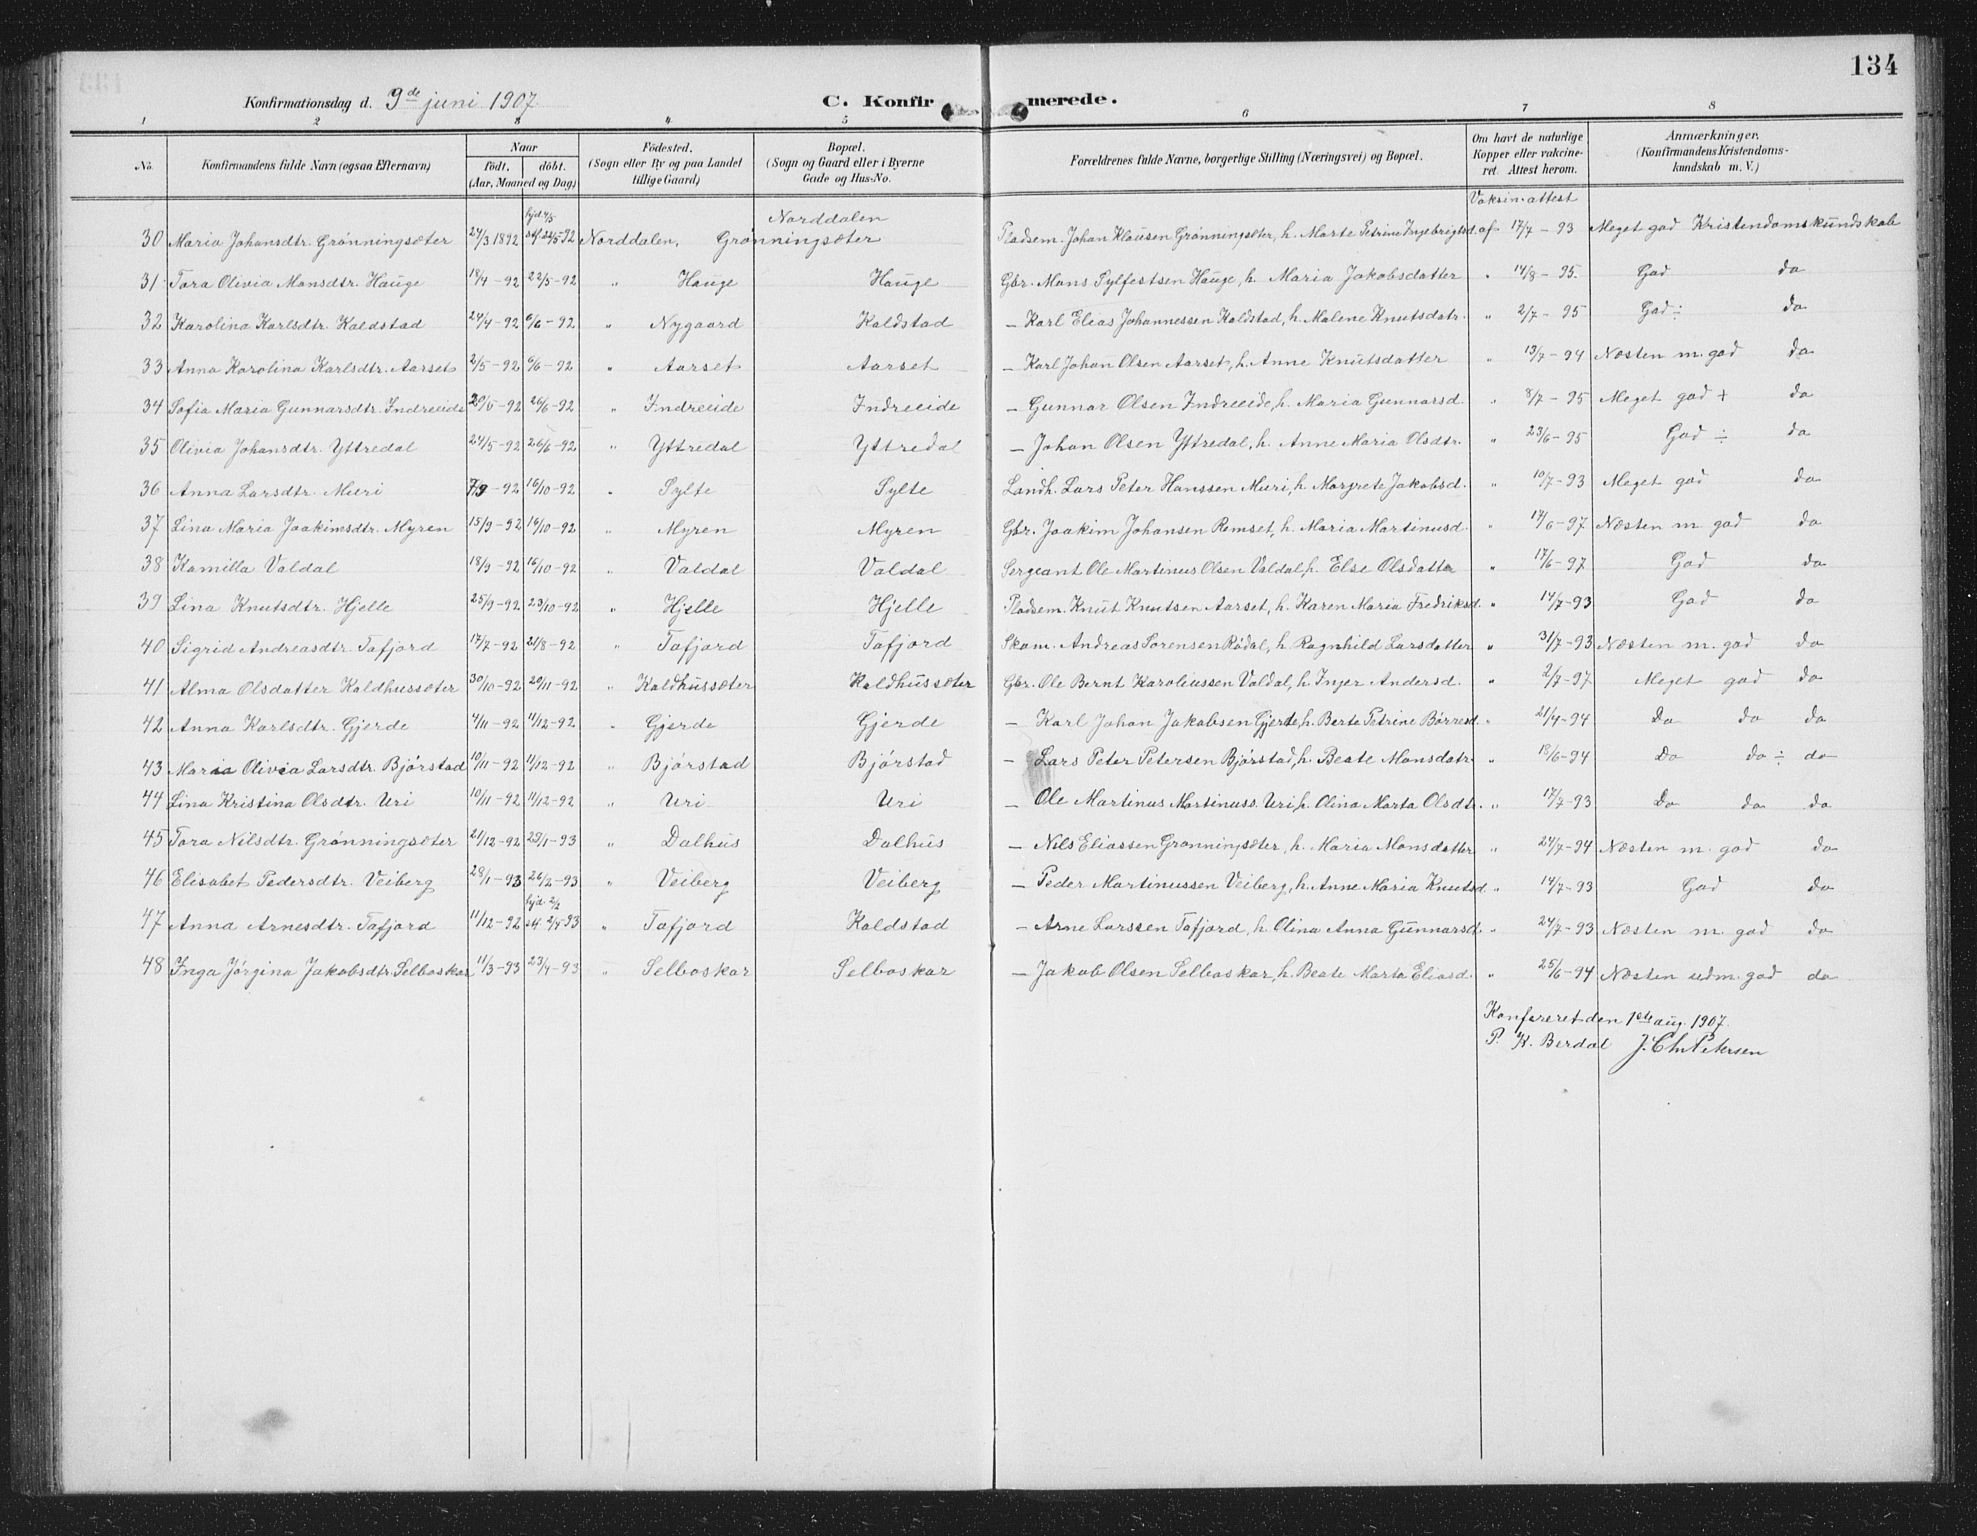 134
Konfirmationsdag d. 9de juni 1907. C. Konfirmerede.
1 2 3 4 5 6 7 8
No. Konfirmandens fulde Navn (ogsaa Efternavn) Naar født, døbt. (Aar, Maaned og Dag) Fødested. (Sogn eller By og paa Landet tillige Gaard) Bopæl. (Sogn og Gaard eller i Byerne Gade og Hus-No. Forældrenes fulde Navne, borgerlige Stilling (Næringsvei) og Bopæl. Om havt de naturlige Kopper eller vakcineret. Attest herom. Anmærkninger. (Konfirmandens Kristendomskundskab m. V.)
Vaksin. attest
Norddalen
30 Maria Johansdtr. Grønningsæter 27/3 1892 hjd. 4/5 stf 22/5-92 Norddalen, Grønningsæter Pladsem. Johan Klausen Grønningsæter, h. Marte Petrine Ingebrigtsd. af 17/7 - 93 Meget god Kristendomskundskab
31 Tora Olivia Monsdtr. Hauge 18/4 - 92 22/5-92 " Hauge Hauge Gbr. Mons Sylfestsen Hauge, h. Maria Jakobsdatter " 14/8 - 95. God do
32 Karolina Karlsdtr. Kaldstad 24/4 - 92 6/6 - 92 " Nygaard Kaldstad — Karl Elias Johannessen Kaldstad, h. Malene Knutsdatr. " 2/7 - 95 God ÷ do
33 Anna Karolina Karlsdtr. Aarset 2/5 - 92 6/6 - 92 " Aarset Aarset — Karl Johan Olsen Aarset, h. Anne Knutsdatter " 13/7 - 94 Næsten m. god do
34 Sofia Maria Gunnarsdtr. Indreeide 20/5 - 92 26/6 - 92 " Indreeide Indreeide — Gunnar Olsen Indreeide, h. Maria Gunnarsd. " 8/7 - 95 Meget god + do
35 Olivia Johansdtr. Yttredal 24/5 - 92 26/6 - 92 " Yttredal Yttredal — Johan Olsen Yttredal, h. Anne Maria Olsdtr. " 23/6 - 95 God ÷ do
36 Anna Larsdtr. Muri 7/9 - 92 16/10 - 92 " Sylte Sylte Landh. Lars Peter Hanssen Muri, h. Margrete Jakobsd. " 10/7 - 93 Meget god do
37 Lina Maria Joakimsdtr. Myren 15/9 - 92 16/10 - 92 " Myren Myren Gbr. Joakim Johansen Remset, h. Maria Martinusd. " 17/6 - 97 Næsten m god do
38 Kamilla Valdal 18/9 - 92 16/10 - 92 " Valdal Valdal Sergeant Ole Martinus Olsen Valdal, h. Else Olsdatter " 17/6 - 97 God do
39 Lina Knutsdtr. Hjelle 25/9 - 92 23/10 - 92 " Hjelle Hjelle Pladsem. Knut Knutsen Aarset, h. Karen Maria Fredriksd. " 14/7 - 93 God do
40 Sigrid Andreasdtr. Tafjord 17/7 - 92 21/8 - 92 " Tafjord Tafjord Skom. Andreas Sørensen Rødal, h. Ragnhild Larsdatter " 31/7 - 93 Næsten m. god do
41 Alma Olsdatter Kaldhussæter 30/10 - 92 20/11 - 92 " Kaldhussæter Kaldhussæter Gbr. Ole Bernt Karoliussen Valdal, h. Inger Andersd. " 2/7 - 97 Meget god do
42 Anna Karlsdtr. Gjerde 4/11 - 92 11/12 - 92 " Gjerde Gjerde — Karl Johan Jakobsen Gjerde, h. Berte Petrine Børresd. " 21/4 - 94 Do do do
43 Maria Olivia Larsdtr. Bjørstad 10/11 - 92 11/12 - 92 " Bjørstad Bjørstad — Lars Peter Petersen Bjørstad, h. Beate Monsdatr. " 18/6 - 94 Do do ÷ do
44 Lina Kristina Olsdtr. Uri 10/11 - 92 11/12 - 92 " Uri Uri — Ole Martinus Martinuss. Uri, h. Olina Marta Olsdtr. " 17/7 - 93 Do do do
45 Tora Nilsdtr. Grønningsæter 21/12 - 92 29/1 - 93 " Dalhus Dalhus — Nils Eliassen Grønningsæter, h. Maria Monsdatter " 24/7 - 94 Næsten m. god do
46 Elisabet Pedersdtr. Veiberg 28/1 - 93 26/2 - 93 " Veiberg Veiberg — Peder Martinussen Veiberg, h. Anne Maria Knutsd. " 14/7 - 93 God do
47 Anna Arnesdtr. Tafjord 11/12 - 92 hjd 2/2 stf 2/4 93 " Tafjord Kaldstad — Arne Larssen Tafjord, h Olina Anna Gunnarsd. " 24/7 - 93 Næsten m. god do
48 Inga Jørgina Jakobsdtr. Selboskar 11/3 - 93 23/4 - 93 " Selboskar Selboskar — Jakob Olsen Selboskar, h. Beate Marta Eliasd. " 25/6 - 94 Næsten udm. god do
Konfereret den 1ste aug. 1907.
P. K. Berdal J. Chr Petersen